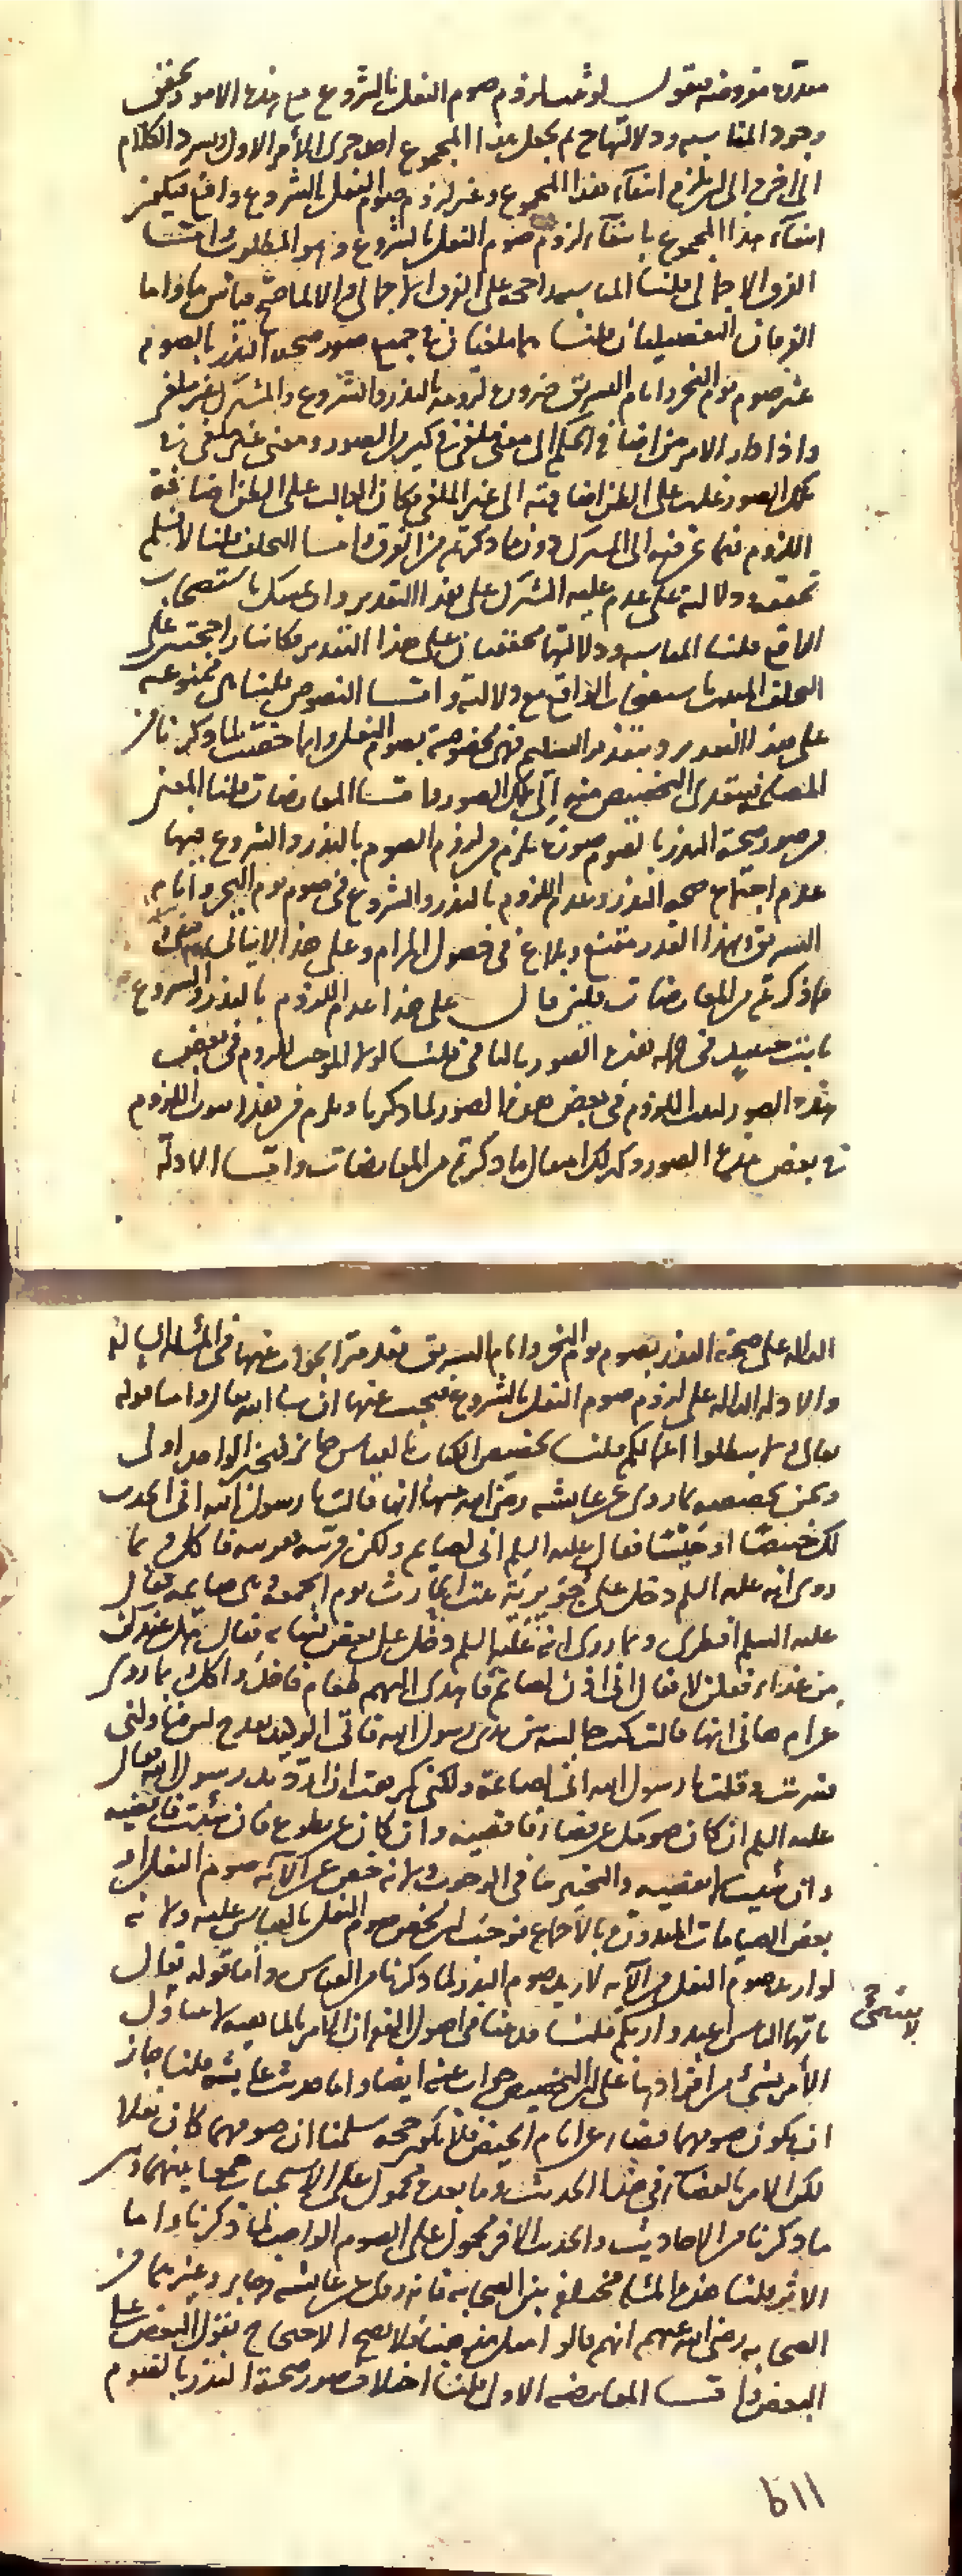 مقدمة مفروضة فنقول لو ثبت لزوم صوم النفل بالشروع مع هذه الامور وتحقق
وجود المناسبة ودلالتها ح لم يجعل هذا المجموع احد جزئي الأمر الاول ويسرد الكلام
الى اخره الى ان يلزم انتفاء هذا المجموع وغير لزوم صوم النفل بالشروع واقع فيكون
انتفاء هذا المجموع بانتفاء لزوم صوم النفل بالشروع وهو المطلوب واما
الفرق الاجمالي قلنا المناسبة راجحة على الفرق الاجمالي والا لما صح قياس ما واما
الفرقان التفصيليان قلنا هما ملغيان في جميع صور صحة النذر بالصوم
غير صوم يوم النحر وايام التشريق ضرورة لزومه بالنذر والشروع والمشترك غير ملغى
واذا دار الامر من اضافة الحكم الى معنى ملغى في كثير من الصور ومعنى غير ملغى في
تلك الصور غلب على الظن اضافته الى غير الملغى فكان الغالب على الظن اضافة
اللزوم فيما عرفته الى المشترك دون ما ذكرتم من الفرق واما التخلف قلنا لا نسلم
تحققه ودلالته على عدم علية المشترك على هذا التقدير وان تمسك باستصحاب
الواقع قلنا المناسبة ودلالتها محققتان على هذا التقدير فكانتا راجحتين على
التخلف الثابت باستصحاب الواقع مع دلالته واما النصوص قلنا هي ممنوعة
على هذا التقدير وبتقدير التسليم فهي مخصوصة بصوم النفل وانما خصت لما ذكرنا من
المصلحة فيتعدى التخصيص منه الى تلك الصور واما المعارضات قلنا المعنى
من صور صحة النذر بالصوم صورة يلزم من لزوم الصوم بالنذر والشروع فيها
عدم اجتماع صحة النذر وعدم اللزوم بالنذر والشروع في صوم يوم النحر وايام
التشريق وبهذا القدر مقنع وبلاغ في حصول المرام وعلى هذا لا يتأتى
ما ذكرتم من المعارضات فلئن قال على هذا عدم اللزوم بالنذر والشروع
ثابت حينئذ في هذه الصور بالنافي قلنا لولا الموجب للزوم في بعض
هذه الصور لثبت اللزوم في بعض هذه الصور لما ذكرنا ويلزم من هذا ثبوت اللزوم
في بعض هذه الصور وكذلك امثال ما ذكرتم من المعارضات واما الادلة
الدالة على صحة النذر بصوم يوم النحر وايام التشريق فقد مر الجواب عنها في المسألة السالفة
والادلة الدالة على لزوم صوم النفل بالشروع فنجيب عنها ان شاء الله تعالى واما قوله
تعالى ولا تبطلوا اعمالكم قلنا تخصيص الكتاب بالقياس جائز فبخبر الواحد اولى
ونحن نخصصه بما روى عن عايشة رضي الله عنها انها قالت يا رسول الله اني اخذت
لك حيسًا او خبئنا فقال عليه السلم اني لصايم ولكن قربيه فقربته فاكل وبما
روى انه عليه السلم دخل على جويرية بنت الحارث يوم الجمعة وهي صايمة فقال
عليه السلم افطرى وبما روى انه عليه السلم دخل على بعض نسايه فقال هل عندك
من غداء فقلن لا فقال اني اذن لصائم فاهدى اليهم طعام فاخذ واكل وبما روى
عن ام هانى انها قالت كنت جالسة بين يدي رسول الله فاتي الوليد بقدح لبن فناولني
فشربت وقلت يا رسول الله اني لصائمة ولكني كرهت ان ارد يد رسول الله فقال
عليه السلم ان كان صومك عن قضاء فاقضيه وان كان عن تطوع فان شئت فاقضيه
وان شئت لا تقضيه والتخيير ينافي الوجوب ولانه خص عن الآية صوم النفل او
بعض الصيامات المندوبة بالاجماع فوجب ان يخص صوم النفل بالقياس عليه ولانه
لو اريد صوم النفل من الآية لاريد صوم النذر لما ذكرنا من القياس واما قوله تعالى
يا ايها الناس اعبدوا ربكم قلنا قد عرفنا في اصول الفقه ان الامر بالماهية لا يتناول
الأمر بشئ من افرادها على ان التخصيص جواب عنه ايضا واما حديث عايشة قلنا جاز
ان يكون صومهما قضاء عن ايام الحيض فلا يكون حجة سلمنا ان صومهما كان نفلا
لكن الامر بالقضاء في هذا الحديث وما بعده محمول على الاستحباب جمعا بينهما وبين
ما ذكرنا من الاحاديث والحديث الاخر محمول على الصوم الواجب لما ذكرنا واما
الاثر قلنا هذه المسئلة مختلف بين الصحابة فانه روي عن عايشة وجابر وغيرهما من
الصحابة رضي الله عنهم انهم قالوا مثل مذهبنا فلا يصح الاحتجاج بقول البعض على
البعض واما المعارضة الاولى قلنا اختلاف صور صحة النذر بالصوم